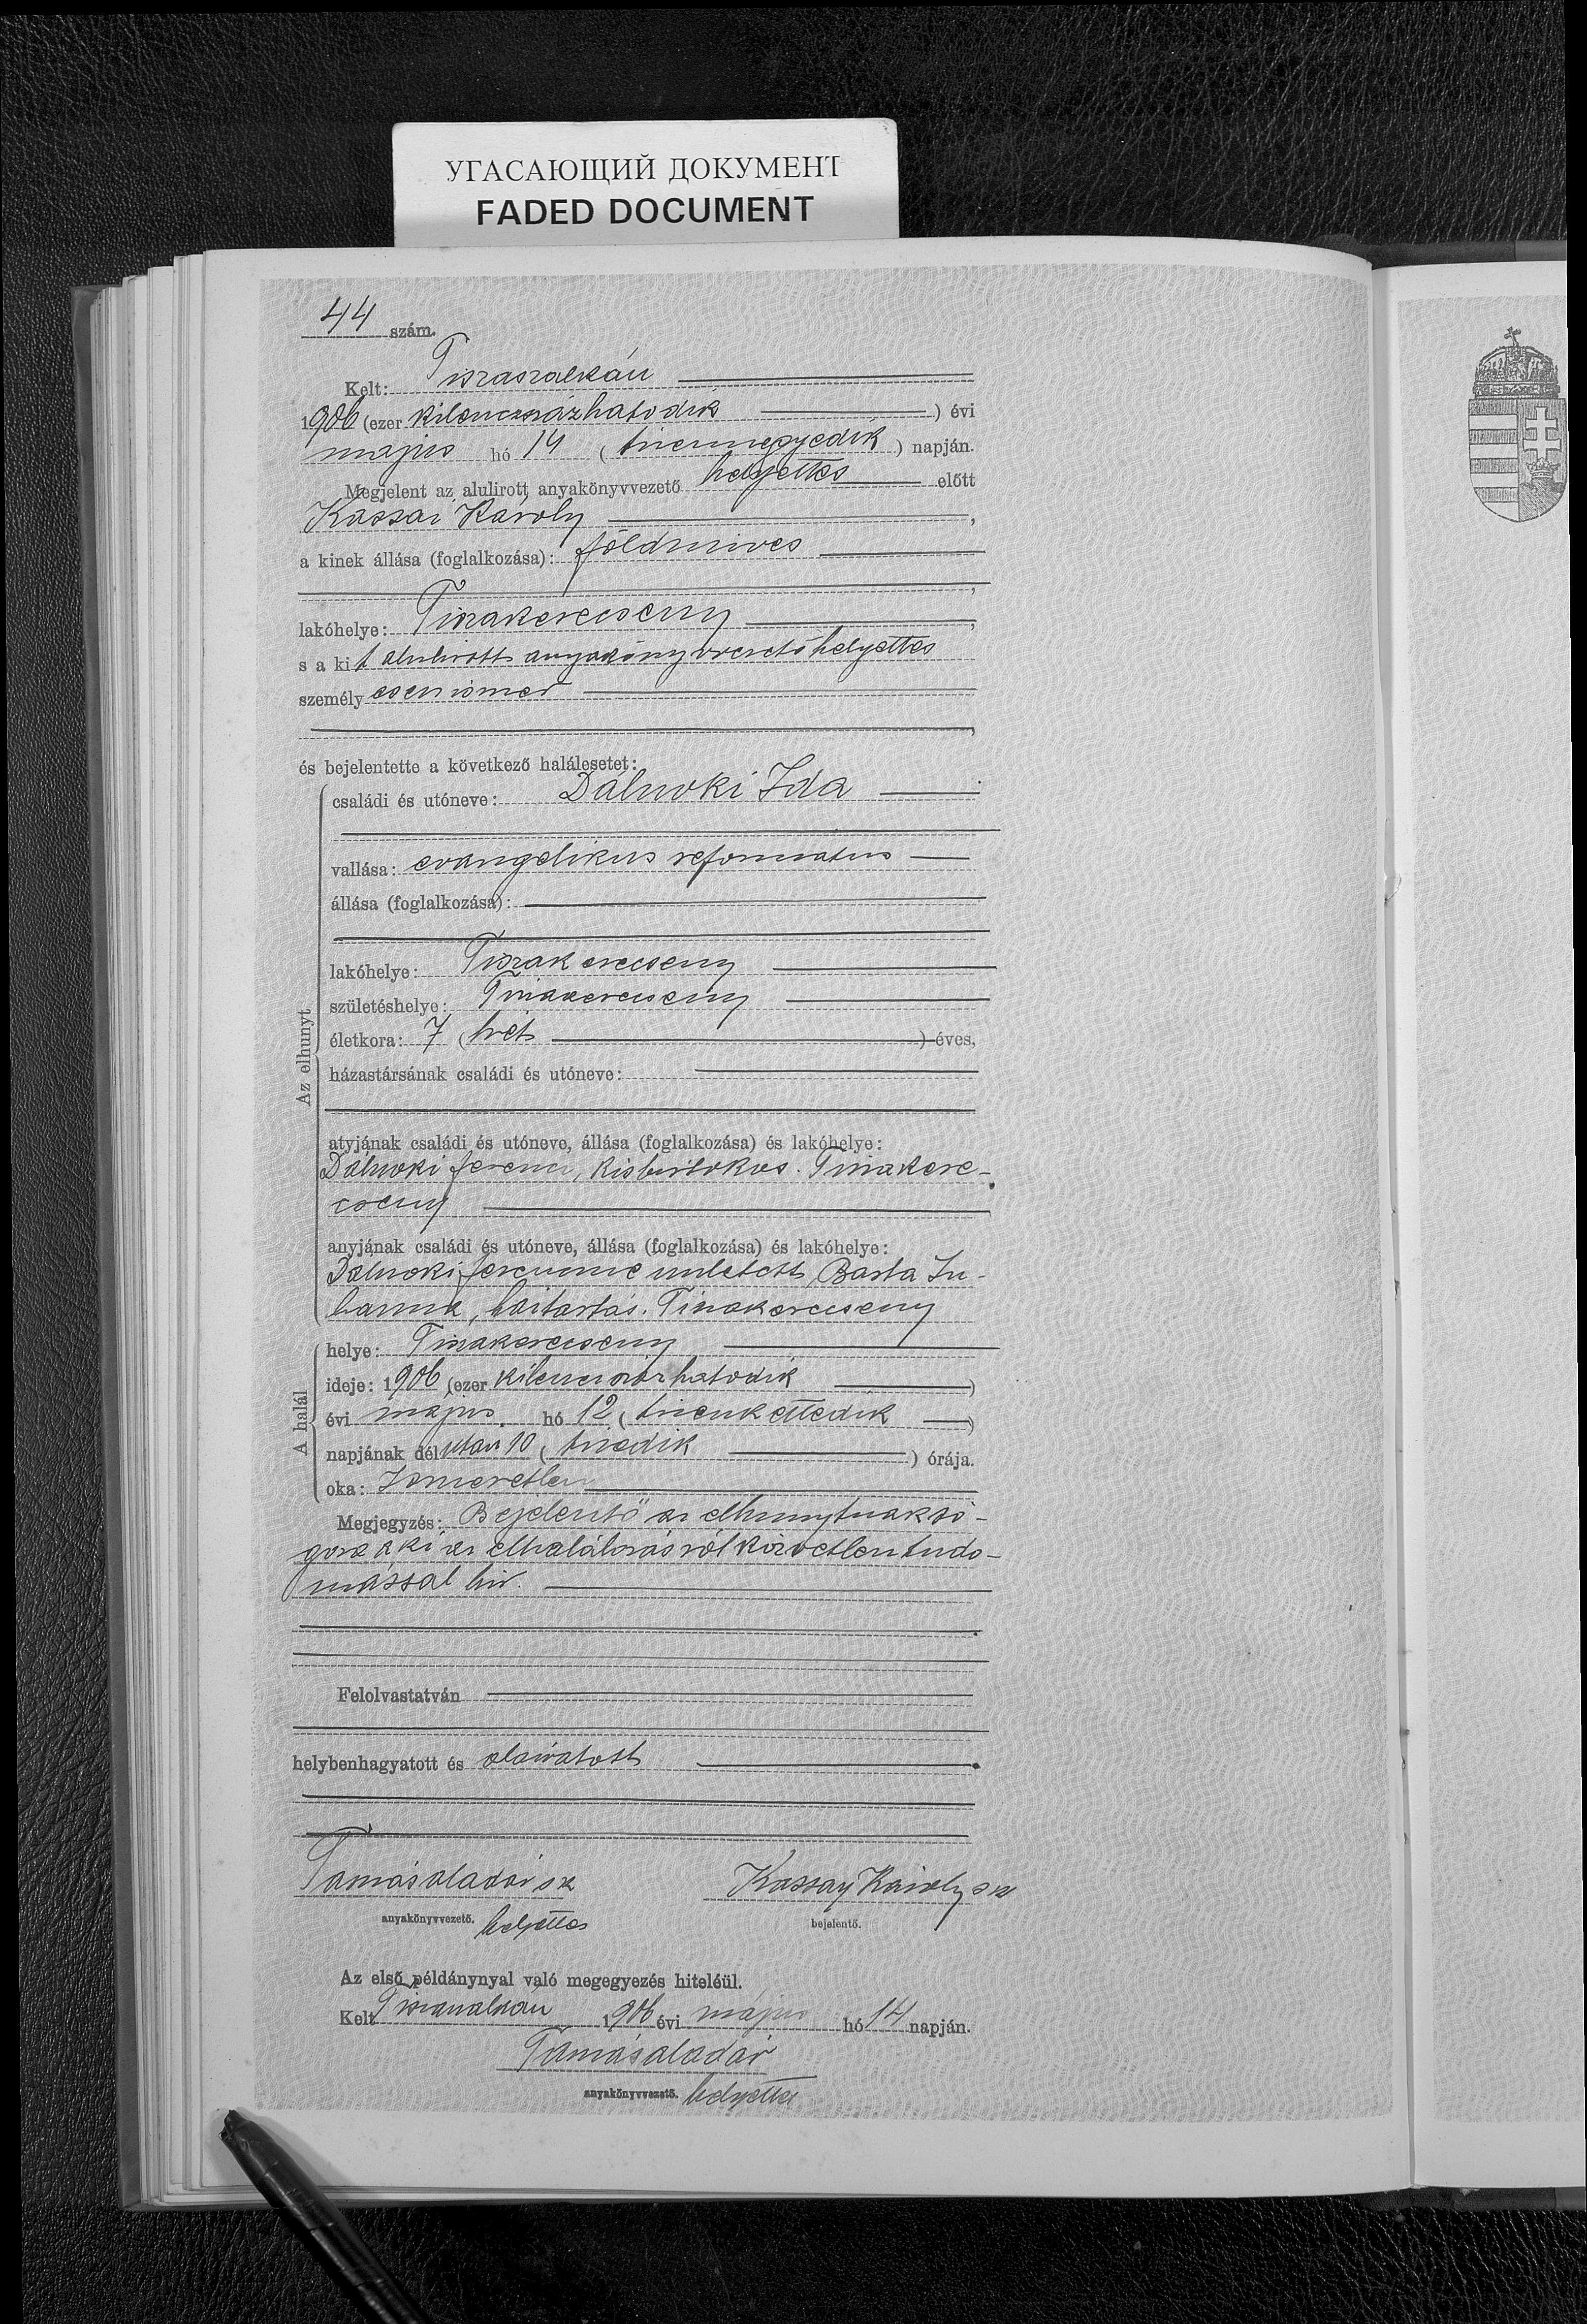 УГАСАЮЩИЙ ДОКУМЕНТ
FADED DOCUMENT
44 szám.
Kelt: Tiszaszalkán
1906 (ezer kilenczszázhatodik) évi
május hó 14 (tizennegyedik) napján.
Megjelent az alulirott anyakönyvvezető helyettes előtt
Kassai Károly,
a kinek állása (foglalkozása): földmives
lakóhelye: Tiszakerecseny,
s a kit alulirott anyakönyvvezető helyettes
személyesen ismer
és bejelentette a következő halálesetet:
Az elhunyt
családi és utóneve: Dálnoki Ida
vallása: evangelikus reformatus
állása (foglalkozása):
lakóhelye: Tiszakerecseny
születéshelye: Tiszakerecseny
életkora: 7 (hét) éves,
házastársának családi és utóneve:
atyjának családi és utóneve, állása (foglalkozása) és lakóhelye:
Dálnoki Ferencz, kisbirtokos. Tiszakere-
cseny
anyjának családi és utóneve, állása (foglalkozása) és lakóhelye:
Dálnoki Ferenczné született Barta Zu-
zanna, háztartás. Tiszakerecseny
A halál
helye: Tiszakerecseny
ideje: 1906 (ezer kilenczszázhatodik)
évi május hó 12 (tizenkettedik)
napjának délután 10 (tizedik) órája.
oka: Ismeretlen
Megjegyzés: Bejelentő az elhunytnak só-
gora a ki az elhalálozásról közvetlen tudo-
mással bir.
Felolvastatván
helybenhagyatott és aláiratott.
Tamás Aladár sk
Kassay Károly sk
anyakönyvvezető. helyettes
bejelentő.
Az első példánynyal való megegyezés hiteléül.
Kelt Tiszaszalkán 1906 évi május hó 14 napján.
Tamás Aladár
anyakönyvvezető. helyettes